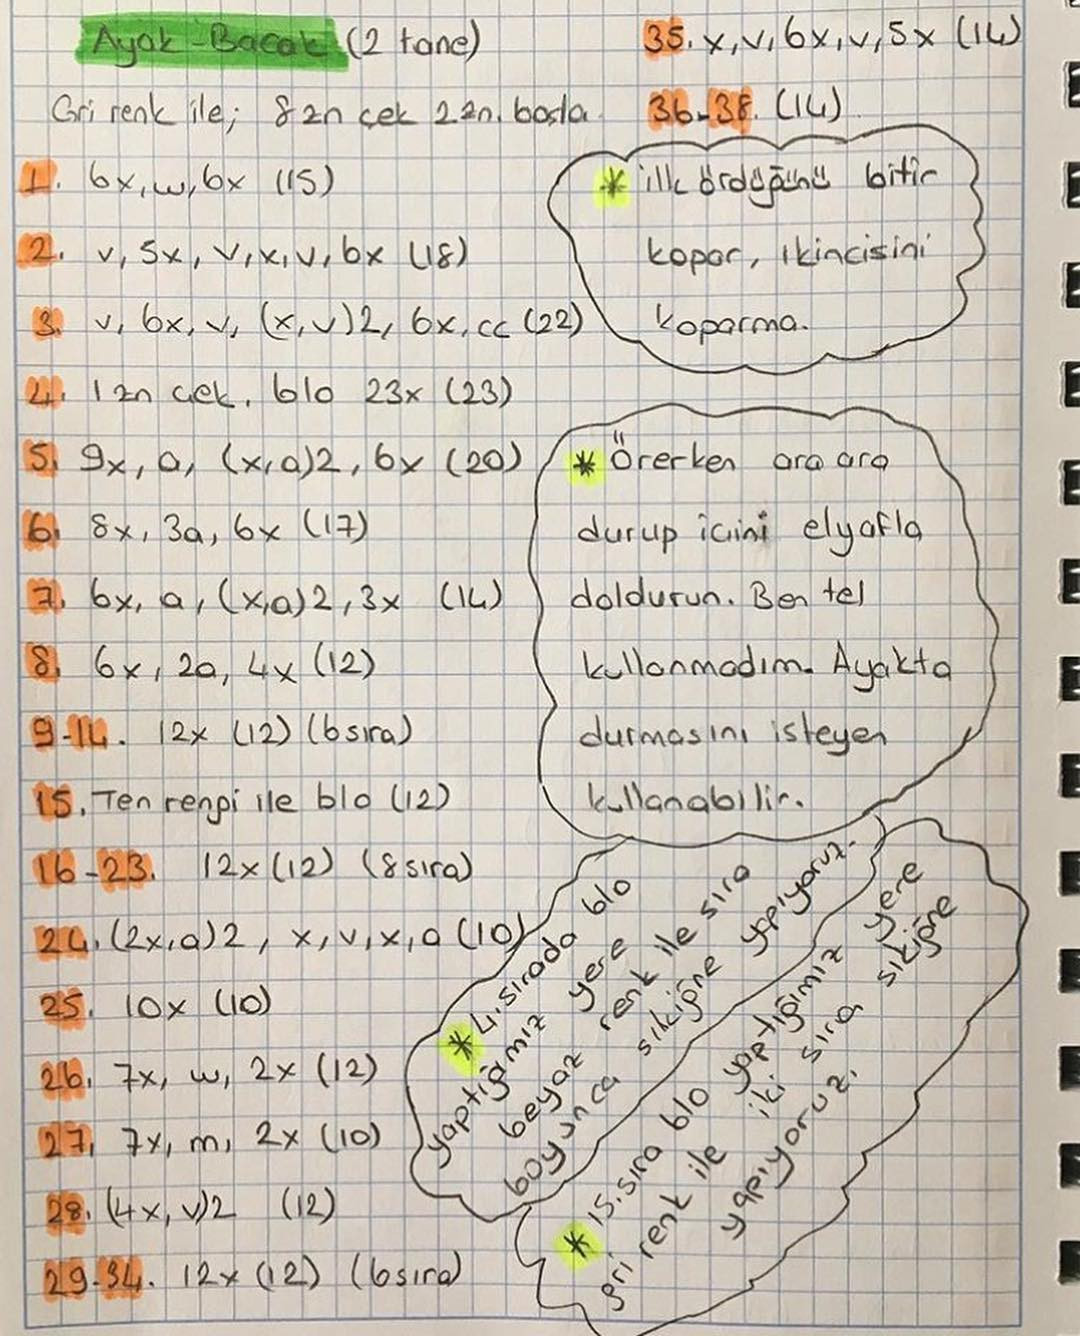 Ayak-Bacak (2 tane)
Gri renk ile; 8 zn çek 2.zn. başla.
1. 6x, w, 6x (15)
2. v, 5x, v, x, v, 6x (18)
3. v, 6x, v, (x, v)2, 6x, cc (22)
4. 1 zn çek. blo 23x (23)
5. 9x, a, (x, a)2, 6x (20)
6. 8x, 3a, 6x (17)
7. 6x, a, (x,a)2, 3x (14)
8. 6x, 2a, 4x (12)
9-14. 12x (12) (6 sıra)
15. Ten rengi ile blo (12)
16-23. 12x (12) (8 sıra)
24. (2x, a)2, x, v, x, a (10)
25. 10x (10)
26. 7x, w, 2x (12)
27. 7x, m, 2x (10)
28. (4x, v)2 (12)
29-34. 12x (12) (6 sıra)
35. x, v, 6x, v, 5x (14)
36-38. (14)
* ilk ördüğünü bitir
kopar, ikincisini
koparma.
* Örerken ara ara
durup içini elyafla
doldurun. Ben tel
kullanmadım. Ayakta
durmasını isteyen
kullanabilir.
* 4. sırada blo
yaptığımız yere
beyaz renk ile sıra
boyunca sıkiğne yapıyoruz.
* 15. sıra blo yaptığımız yere
gri renk ile iki sıra sıkiğne
yapıyoruz.